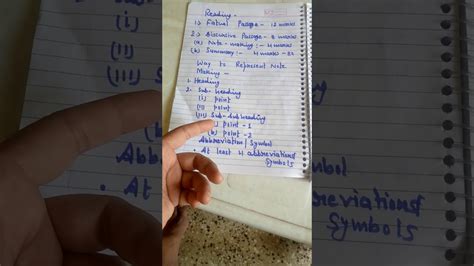 Reading -
1) Factual Passage - 12 marks
2) Discursive Passage - 8 marks
(a) Note-making :- 4 marks
(b) Summary :- 4 marks
Way to Represent Note
Making -
1. Heading
2. Sub-heading
(i) point
(ii) point
(iii) Sub-subheading
point - 1
(b) point - 2
Abbreviation/Symbol
• At least 4 abbreviations
Symbols